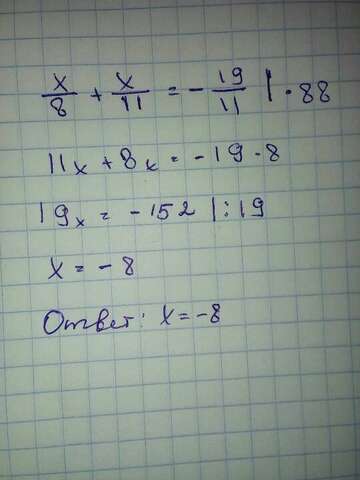 x/8 + x/11 = - 19/11 | · 88
11x + 8x = - 19 · 8
19x = - 152 | : 19
x = - 8
Ответ: x = - 8